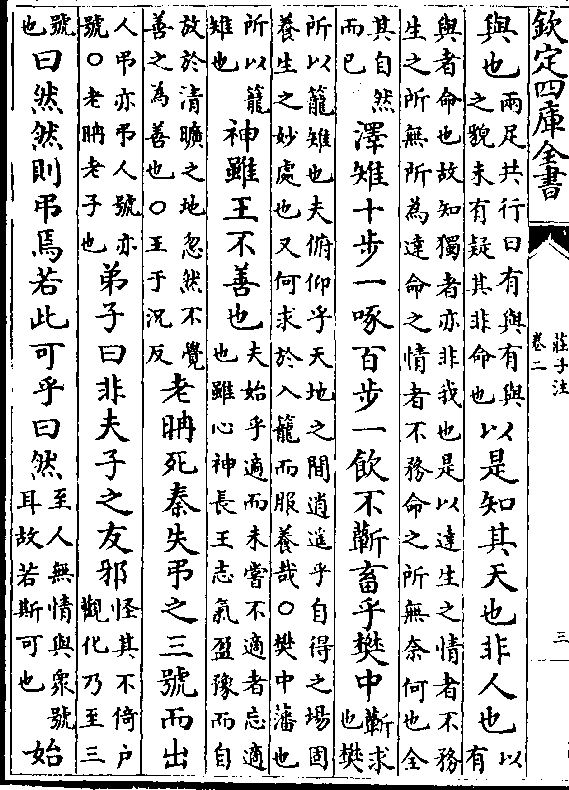 欽定四庫全書
莊子注
卷二
三
與也
兩足共行曰有與有與
之貌未有疑其非命也
以是知其天也非人也
以
有
與者命也故知獨者亦非我也是以達生之情者不務
生之所無所為達命之情者不務命之所無奈何也全
其自然
而已
澤雉十步一啄百步一飲不蘄畜乎樊中
蘄求
也樊
所以籠雉也夫俯仰乎天地之間逍遥乎自得之場固
養生之妙處也又何求於入籠而服養哉○樊中藩也
所以籠
雉也
神雖王不善也
夫始乎適而未嘗不適者忘適
也雖心神長王志氣盈豫而自
放於清曠之地忽然不覺
善之為善也○王于况反
老聃死秦失弔之三號而出
人弔亦弔人號亦
號○老聃老子也
弟子曰非夫子之友邪
怪其不倚户
觀化乃至三
號
也
曰然然則弔焉若此可乎曰然
至人無情與衆號
耳故若斯可也
始